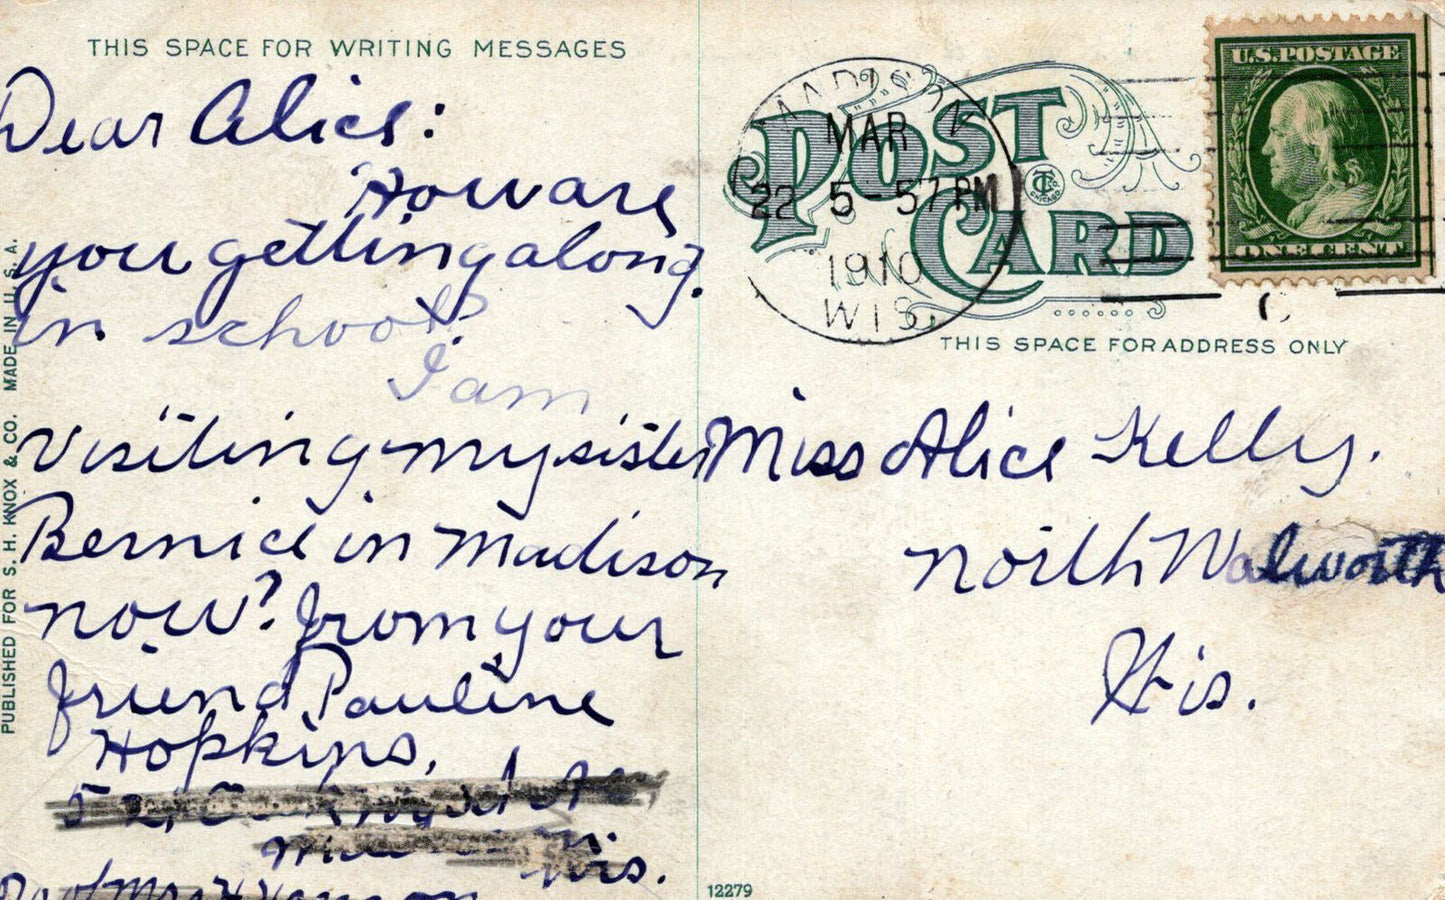 THIS SPACE FOR WRITING MESSAGES
Dear Alice:
How are
you getting along
in school?
I am
visiting my sister
Bernice in Madison
now? from your
friend Pauline
Hopkins,
Wis.
PUBLISHED FOR S. H. KNOX & CO. MADE IN U. S. A.
MADISON
MAR
22 5-57 PM
1910
WIS.
POST
CARD
CHICAGO
U.S. POSTAGE
ONE CENT
THIS SPACE FOR ADDRESS ONLY
Miss Alice Kelly.
North Walworth
Wis.
12279